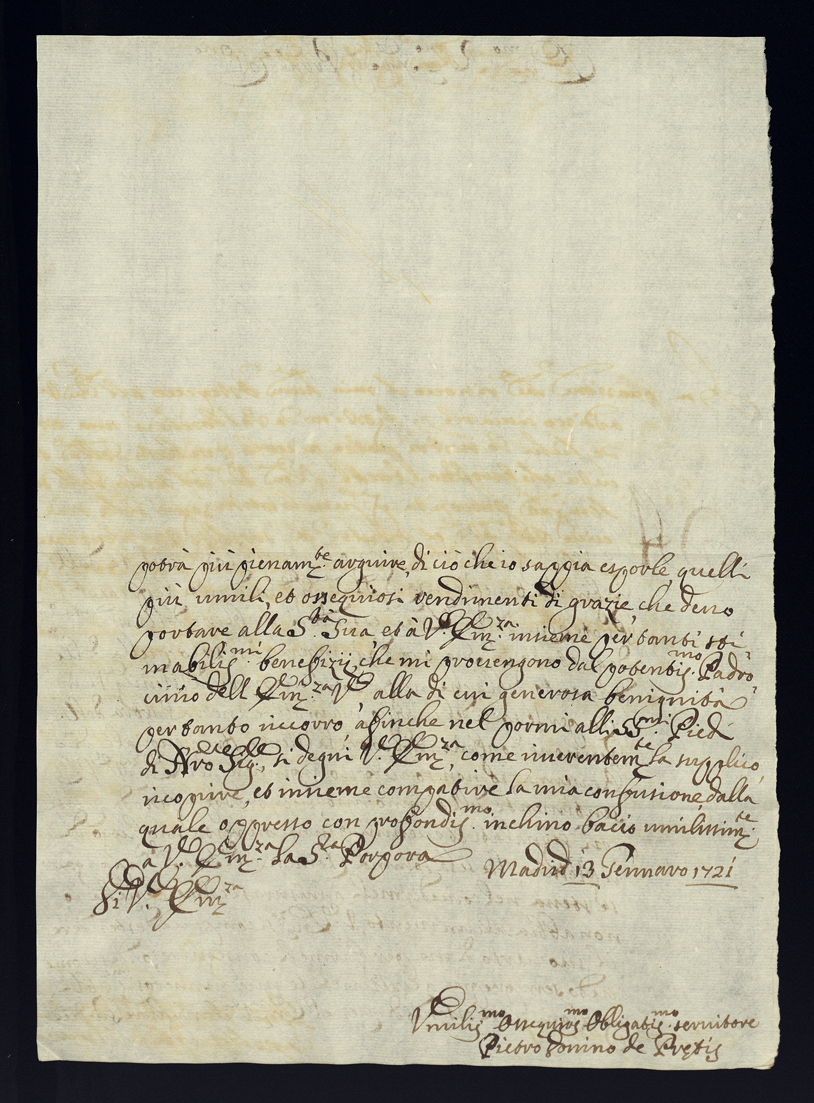 potrà più pienam.te arguire, di ciò che io sappia esporle quelli
più umili, et ossequiosi rendimenti di grazie che devo
portare alla S.tà Sua et à V. Em.za insieme per tanti sti-
mabilis.mi benefizij, che mi provengono dal potentis.mo Padro-
cinio dell Em.za V. alla di cui generosa benignità
pertanto riccorro, afinche nel pormi alli SS.mi Piedi
di Nro Sig.re, si degni V. Em.za, come riverentem.te la supplico,
ricoprire, et insieme compatire la mia confusione, dalla
quale oppresso con profondis.mo inchino bacio umilissim.te
a V. Em.za la S.ra Porpora
Madrid 13 Gennaro 1721
Di V. Em.za
Umilis.mo Ossequios.mo Obligatis.mo servitore
Pietro Donino de Pretis